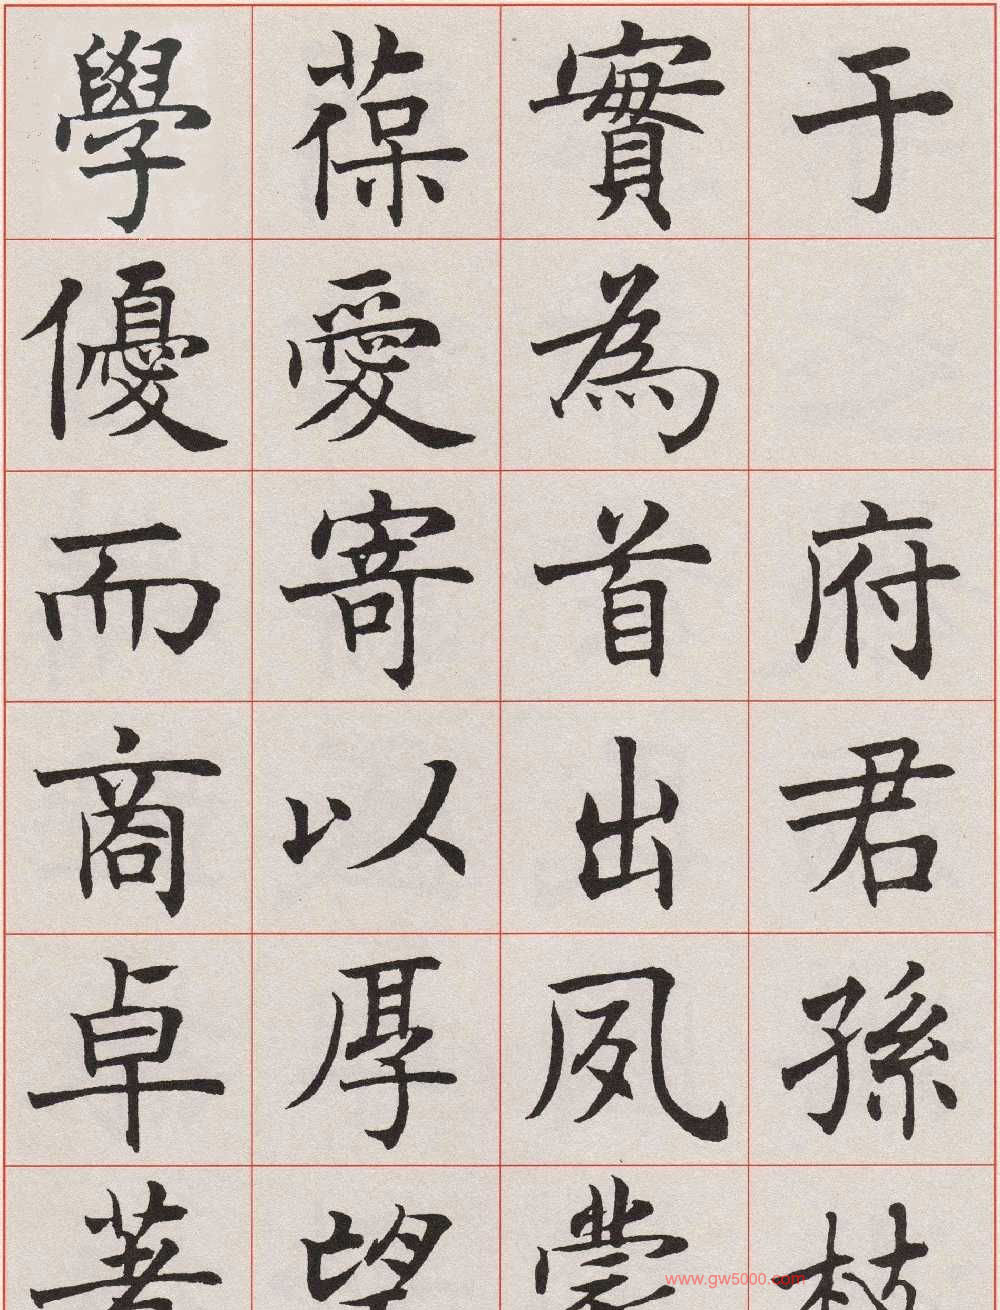 于府君孫
實為首出夙蒙
葆愛寄以厚望
學優而商卓著
www.gw5000.com